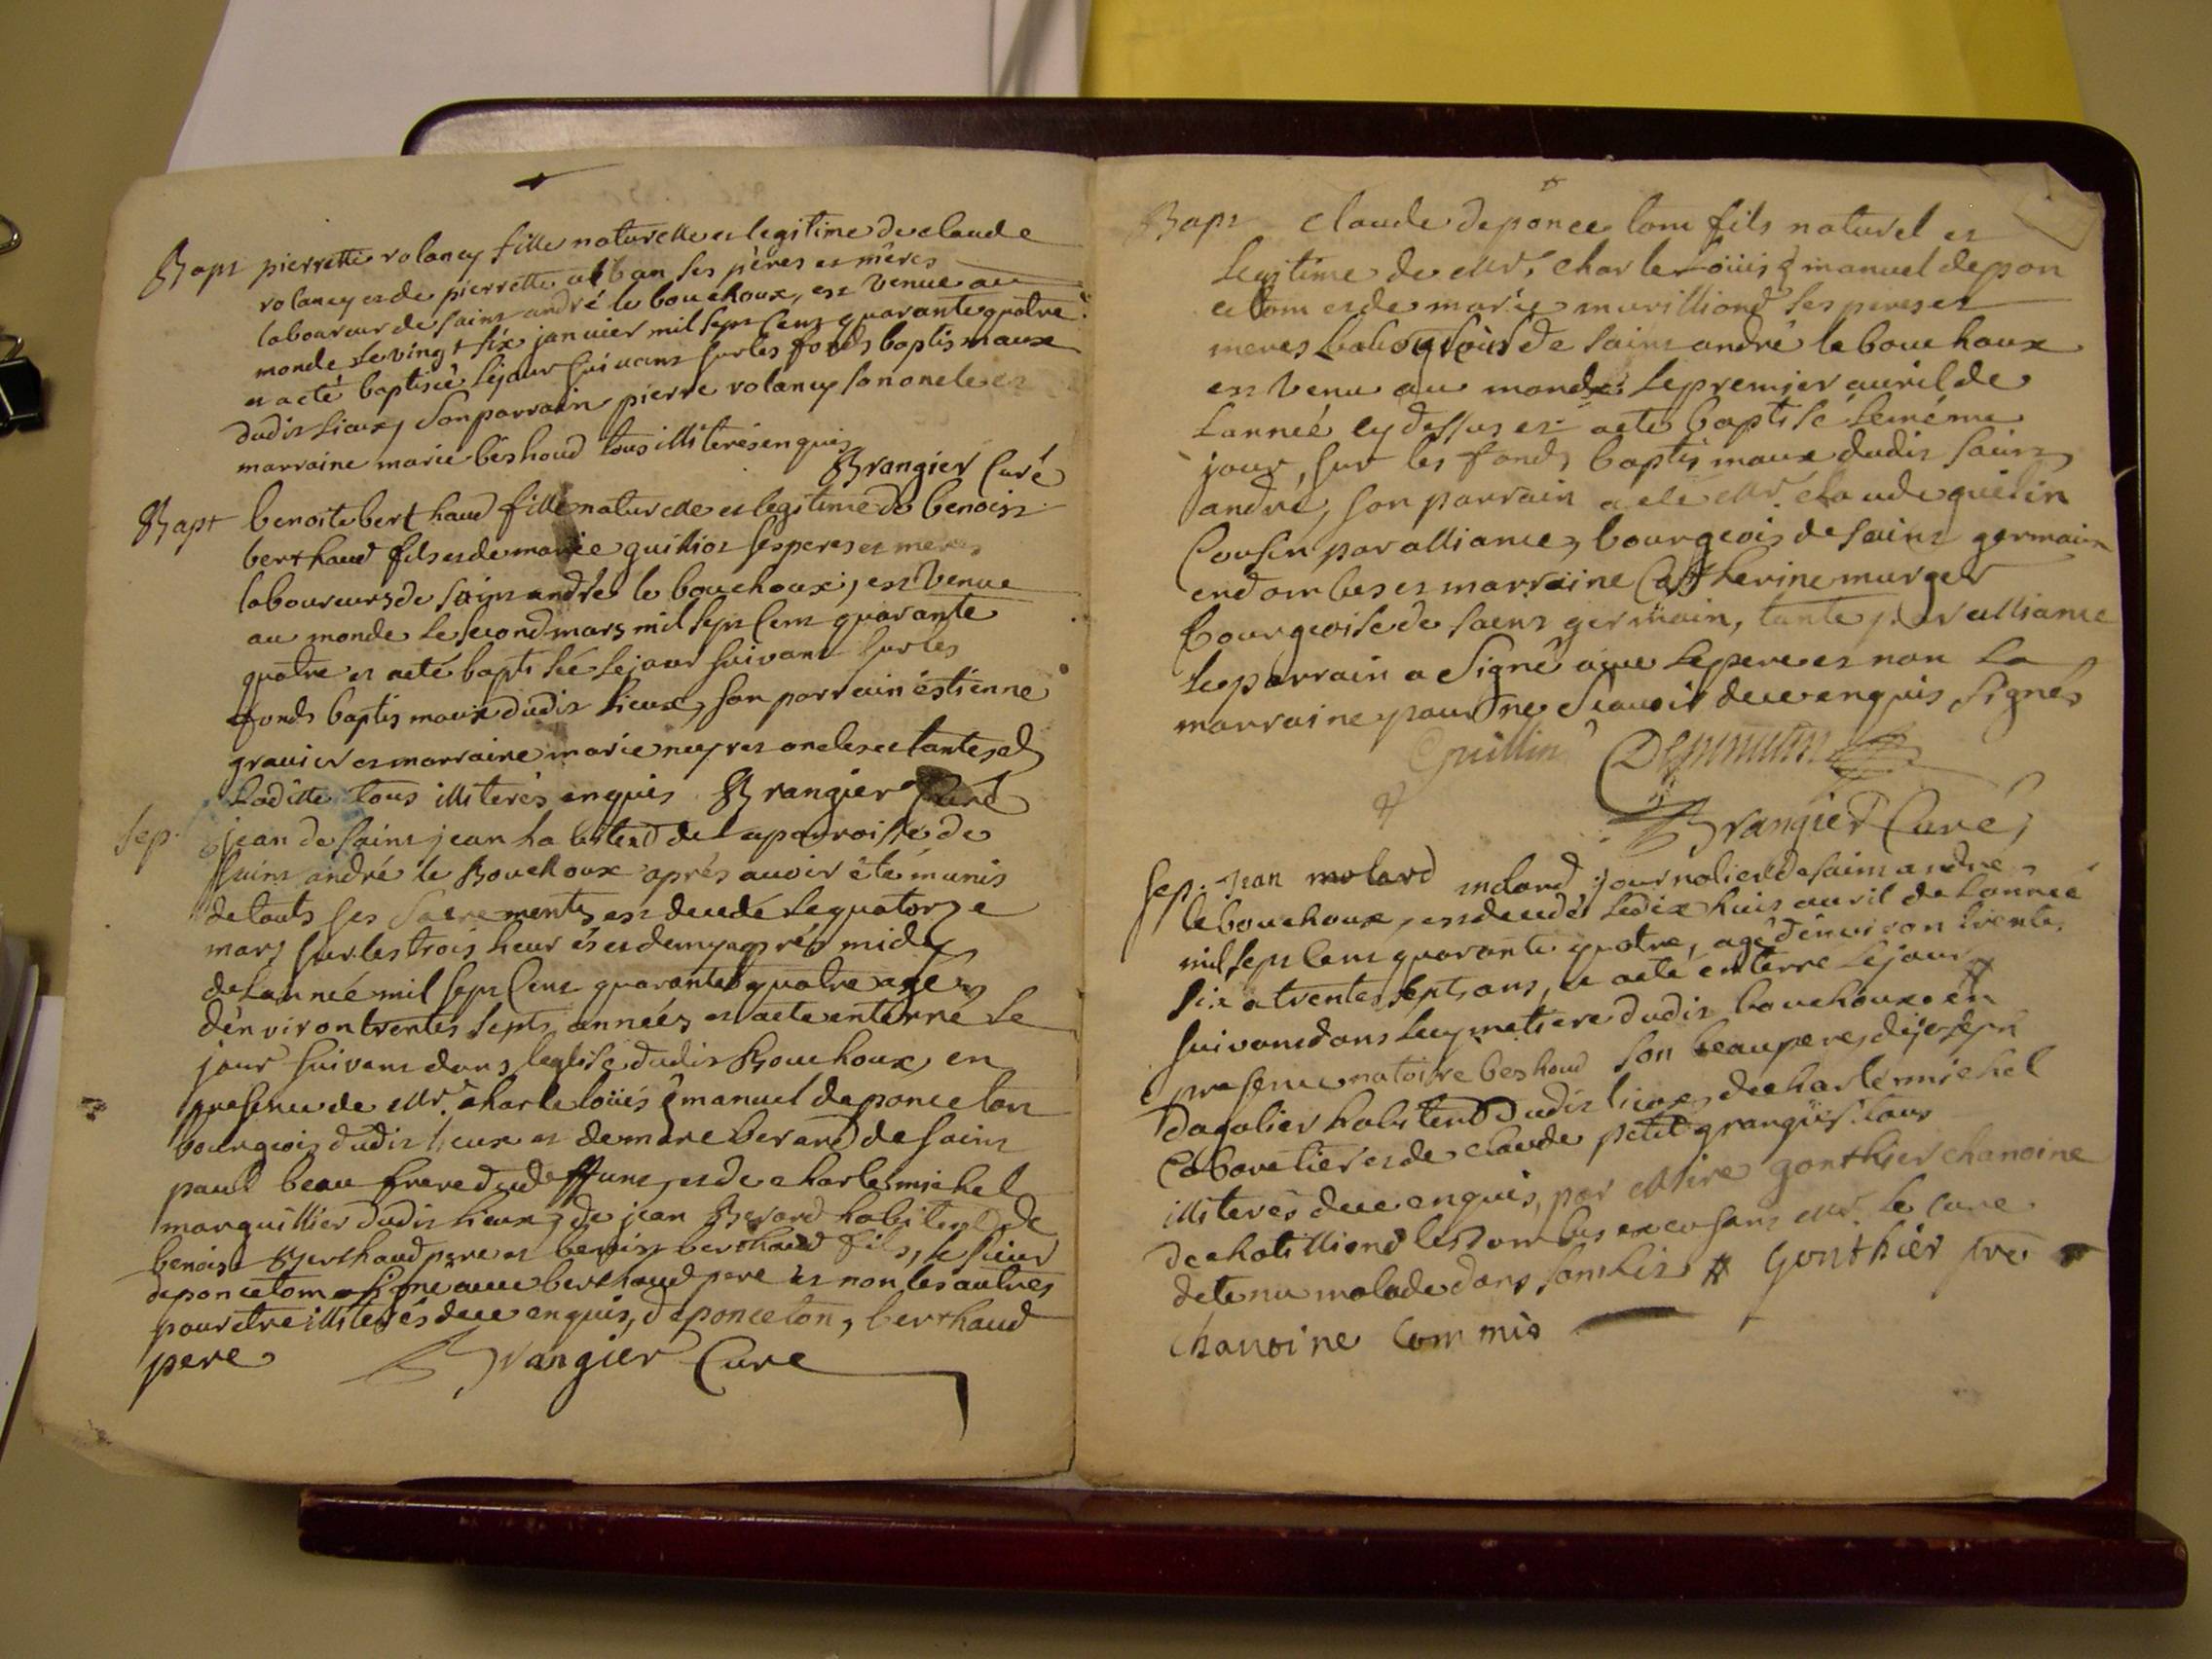 Bapt pierrette rolancy fille naturelle et legitime de claude
rolancy et de pierrette alban ses pères et mères
laboureur de saint andré le bouchoux, est venue au
monde le vingt six janvier mil sept cent quarante quatre
et a eté baptiseé le jour suivant sur les fonds baptismaux
dudit lieux, son parrain pierre rolancy son oncle et
marraine marie béshoud tous illiterés enquis
Brangier Curé
Bapt benoite berthaud fille naturelle et legitime de benoist
berthaud fils et de marie guillot ses peres et meres
laboureurs de saint andré le bouchoux, est venue
au monde le second mars mil sept cent quarante
quatre et a eté baptiseé le jour suivant sur les
fonds baptismaux dudit lieux, son parrain éstienne
gravier et marraine marie neyret oncles et tantes de
laditte tous illiterés enquis Brangier Curé
Sep. jean de saint jean habitend de la parroisse de
saint andré le Bouchoux aprés avoir été munis
de touts ses sacrements est decedé le quatorze
mars sur les trois heurés et demy aprés midy
de l'année mil sept cent quarante quatre agé
d'environ trentes septs années et a eté enterré le
jour suivant dans leglise dudit Bouchoux, en
presence de Mr. charle loüis émanuel de ponceton
bourgeois dudit lieux et de mare berard de saint
paul beau frere dudeffunt, et de charle michel
marguillier dudit lieux, de jean Berard habitend de
benoist Berthaud pere et benoist berthaud fils, le sieur
deponcetom a signé avec berthaud pere et non les autres
pour etre illiterés de ce enquis, deponceton, berthaud
pere Brangier Cure
Bapt claude deponcetom fils naturel et
legitime de Mr. charle Loüis émanuel depon
cetom et de marie murilliond ses peres et
meres bourgeois de saint andré le bouchoux
est venu au monde le premier avril de
l'anneé cy dessus et a eté baptisé le méme
jour, sur les fonds baptismaux dudit saint
andré, son parrain a eté Mr. claude guélin
Cousin par alliance, bourgeois de saint germain
en dombes et marraine Catherine murger
bourgeoise de saint germain, tante par alliance
le parrain a signé avec le pere et non la
marraine pour ne scavoir de ce enquis signés
Guillin Deponceton
Brangier Curé
Sep. jean molard molard journalier de saint andre
le bouchoux, est decedé le dix huit avril de l'anneé
mil sept cent quarante quatre, agé d'environ trente
six a trentes septs ans, et a eté enterré le jour
suivant dans le cymetiere dudit bouchoux en
presence natoire beshoud son beaupere, de joseph
dagalier habitend dudit lieux, de charle michel
Cabaretier et de claude petit grangier tous
illiterés de ce enquis, par Mire gonthier chanoine
de chatilliond les dombes excusant Mr. le cure
detenu malade dans son lit # Gonthier pre
chanoine Commis